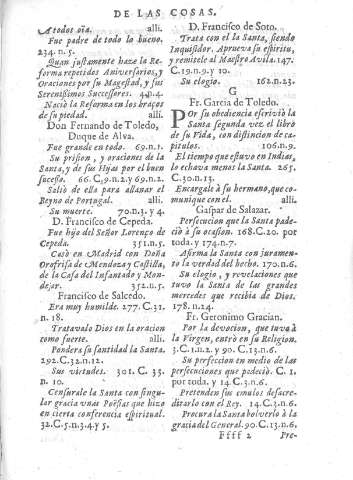 DE LAS COSAS.
A todos oìa. alli.
Fue padre de todo lo bueno.
234. n.5.
Quan justamente haze la Re-
forma repetidos Aniversarios, y
Oraciones por su Magestad, y sus
Serenissimos Successores. 44.n.4.
Naciò la Reforma en los braços
de su piedad. alli.
Don Fernando de Toledo,
Duque de Alva.
Fue grande en todo. 69.n.1.
Su prision, y oraciones de la
Santa, y de sus Hijas por el buen
sucesso. 66. C.9.n.2. y 69.n.2.
Saliò de ella para allanar el
Reyno de Portugal. alli.
Su muerte. 70.n.3. y 4.
D. Francisco de Cepeda.
Fue hijo del Señor Lorenço de
Cepeda. 351.n.5.
Casò en Madrid con Doña
Orofrisa de Mendoza y Castilla,
de la Casa del Infantado y Mon-
dejar. 352.n.5.
Francisco de Salcedo.
Era muy humilde. 277. C.31.
n. 18.
Tratavalo Dios en la oracion
como fuerte. alli.
Pondera su santidad la Santa.
292.C.32.n.12.
Sus virtudes. 301. C. 33.
n. 10.
Censurale la Santa con singu-
lar gracia unas Poësias que hizo
en cierta conferencia espiritual.
32.C.5.n.3.4.y 5.
D. Francisco de Soto.
Trata con el la Santa, siendo
Inquisidor. Aprueva su espiritu,
y remitele al Maestro Avila. 147.
C.19.n.9. y 10.
Su elogio. 162.n.23.
G
Fr. Garcia de Toledo.
Por su obediencia escriviò la
Santa segunda vez el libro
de su Vida, con distincion de ca-
pitulos. 106.n.9.
El tiempo que estuvo en Indias,
le echava menos la Santa. 265.
C.30.n.13.
Encargale à su hermano, que co-
munique con el. alli.
Gaspar de Salazar.
Persecucion que la Santa pade-
ciò à su ocasion. 168.C.20. por
toda. y 174.n.7.
Afirma la Santa con juramen-
to la verdad del hecho. 170.n.6.
Su elogio, y revelaciones que
tuvo la Santa de las grandes
mercedes que recibia de Dios.
178. n.24.
Fr. Geronimo Gracian.
Por la devocion, que tuvo à
la Virgen, entrò en su Religion.
3.C.1.n.2. y 90. C.13.n.6.
Su perfeccion en medio de las
persecuciones que padeciò. C. 1.
por toda. y 14.C.3.n.6.
Pretenden sus emulos desacre-
ditarlo con el Rey. 14.C.3.n.6.
Procura la Santa bolverlo à la
gracia del General. 90.C.13.n.6.
Ffff 2 Pre-